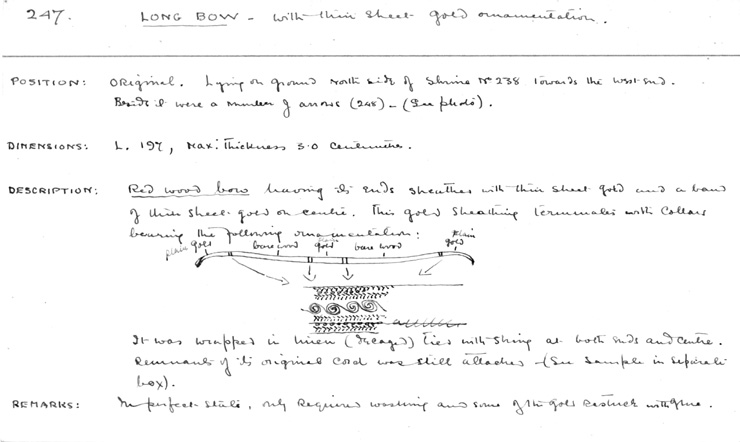 247. LONG BOW - with thin sheet-gold ornamentation.
POSITION: Original. Lying on ground North side of Shrine Nº 238 towards the west-end.
Beside it were a number of arrows (248) - (See photo).
DIMENSIONS: L. 197, Max: Thickness 3.0 Centimetres.
DESCRIPTION: Red wood bow having its ends sheathed with thin sheet gold and a band
of thin sheet-gold on centre. This gold sheathing terminates with collars
bearing the following ornamentation:
plain gold bare wood plain gold bare wood plain gold
It was wrapped in linen (decayed) tied with string at both ends and centre.
Remnants of its original cord was still attached - (See sample in separate
box).
REMARKS: In perfect state, only required washing and some of the gold restuck with glue.